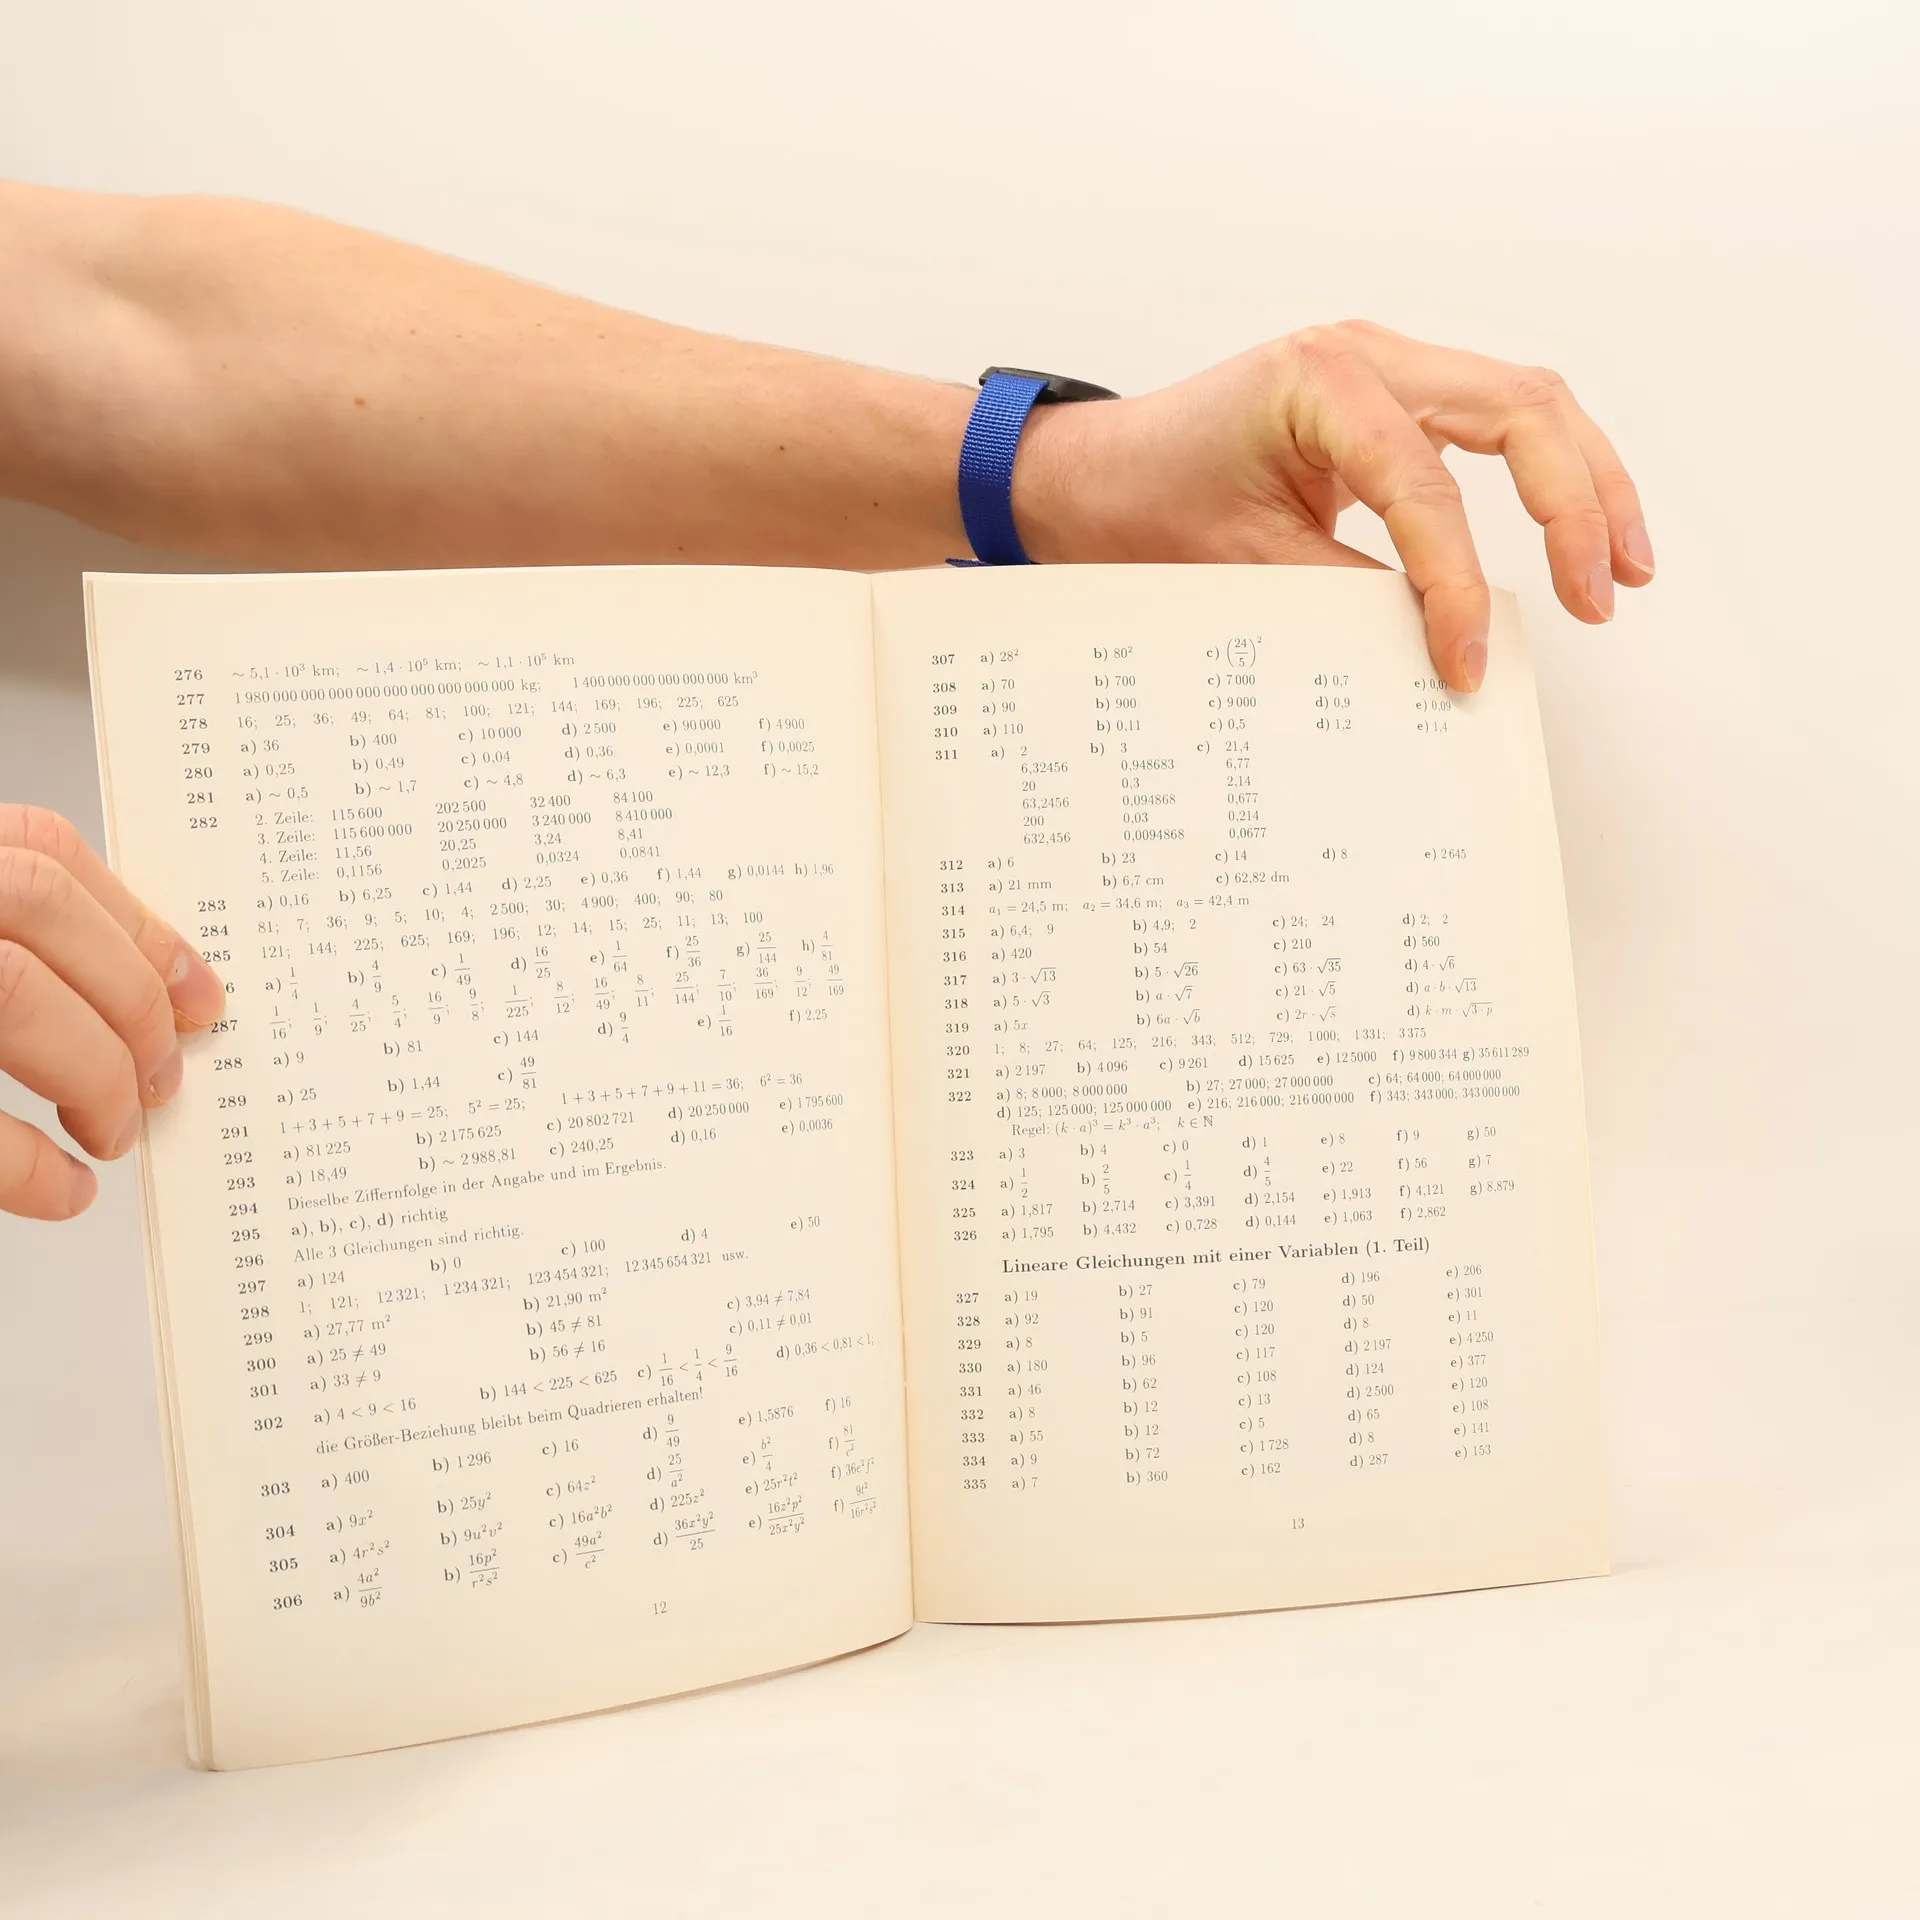 276 ~ 5,1 · 10³ km; ~ 1,4 · 10⁵ km; ~ 1,1 · 10⁵ km
277 1 980 000 000 000 000 000 000 000 000 000 kg; 1 400 000 000 000 000 000 km³
278 16; 25; 36; 49; 64; 81; 100; 121; 144; 169; 196; 225; 625
279 a) 36 b) 400 c) 10 000 d) 2 500 e) 90 000 f) 4 900
280 a) 0,25 b) 0,49 c) 0,04 d) 0,36 e) 0,0001 f) 0,0025
281 a) ~ 0,5 b) ~ 1,7 c) ~ 4,8 d) ~ 6,3 e) ~ 12,3 f) ~ 15,2
282 2. Zeile: 115 600 202 500 32 400 84 100
3. Zeile: 115 600 000 20 250 000 3 240 000 8 410 000
4. Zeile: 11,56 20,25 3,24 8,41
5. Zeile: 0,1156 0,2025 0,0324 0,0841
283 a) 0,16 b) 6,25 c) 1,44 d) 2,25 e) 0,36 f) 1,44 g) 0,0144 h) 1,96
284 81; 7; 36; 9; 5; 10; 4; 2 500; 30; 4 900; 400; 90; 80
285 121; 144; 225; 625; 169; 196; 12; 14; 15; 25; 11; 13; 100
6 a) 1/4 b) 4/9 c) 1/49 d) 16/25 e) 1/64 f) 25/36 g) 25/144 h) 4/81
287 1/16; 1/9; 4/25; 5/4; 16/9; 9/8; 1/225; 8/12; 16/49; 8/11; 25/144; 7/10; 36/169; 9/12; 49/169
288 a) 9 b) 81 c) 144 d) 9/4 e) 1/16 f) 2,25
289 a) 25 b) 1,44 c) 49/81
291 1 + 3 + 5 + 7 + 9 = 25; 5² = 25; 1 + 3 + 5 + 7 + 9 + 11 = 36; 6² = 36
292 a) 81 225 b) 2 175 625 c) 20 802 721 d) 20 250 000 e) 1 795 600
293 a) 18,49 b) ~ 2 988,81 c) 240,25 d) 0,16 e) 0,0036
294 Dieselbe Ziffernfolge in der Angabe und im Ergebnis.
295 a), b), c), d) richtig
296 Alle 3 Gleichungen sind richtig.
297 a) 124 b) 0 c) 100 d) 4 e) 50
298 1; 121; 12 321; 1 234 321; 123 454 321; 12 345 654 321 usw.
299 a) 27,77 m² b) 21,90 m²
300 a) 25 ≠ 49 b) 45 ≠ 81 c) 3,94 ≠ 7,84
301 a) 33 ≠ 9 b) 56 ≠ 16 c) 0,11 ≠ 0,01
302 a) 4 < 9 < 16 b) 144 < 225 < 625 c) 1/16 < 1/4 < 9/16 d) 0,36 < 0,81 < 1;
die Größer-Beziehung bleibt beim Quadrieren erhalten!
303 a) 400 b) 1 296 c) 16 d) 9/49 e) 1,5876 f) 16
304 a) 9x² b) 25y² c) 64z² d) 25/a² e) b²/4 f) 81/c²
305 a) 4r²s² b) 9u²v² c) 16a²b² d) 225z² e) 25r²t² f) 36e²f²
306 a) 4a²/9b² b) 16p²/r²s² c) 49a²/c² d) 36x²y²/25 e) 16z²p²/25x²y² f) 9t²/16r²s²
12
307 a) 28² b) 80² c) (24/5)²
308 a) 70 b) 700 c) 7 000 d) 0,7 e) 0,07
309 a) 90 b) 900 c) 9 000 d) 0,9 e) 0,09
310 a) 110 b) 0,11 c) 0,5 d) 1,2 e) 1,4
311 a) 2 b) 3 c) 21,4
6,32456 0,948683 6,77
20 0,3 2,14
63,2456 0,094868 0,677
200 0,03 0,214
632,456 0,0094868 0,0677
312 a) 6 b) 23 c) 14 d) 8 e) 2 645
313 a) 21 mm b) 6,7 cm c) 62,82 dm
314 a₁ = 24,5 m; a₂ = 34,6 m; a₃ = 42,4 m
315 a) 6,4; 9 b) 4,9; 2 c) 24; 24 d) 2; 2
316 a) 420 b) 54 c) 210 d) 560
317 a) 3 · √13 b) 5 · √26 c) 63 · √35 d) 4 · √6
318 a) 5 · √3 b) a · √7 c) 21 · √5 d) a · b · √13
319 a) 5x b) 6a · √b c) 2r · √s d) k · m · √3 · p
320 1; 8; 27; 64; 125; 216; 343; 512; 729; 1 000; 1 331; 3 375
321 a) 2 197 b) 4 096 c) 9 261 d) 15 625 e) 125 000 f) 9 800 344 g) 35 611 289
322 a) 8; 8 000; 8 000 000 b) 27; 27 000; 27 000 000 c) 64; 64 000; 64 000 000
d) 125; 125 000; 125 000 000 e) 216; 216 000; 216 000 000 f) 343; 343 000; 343 000 000
Regel: (k · a)³ = k³ · a³; k ∈ ℕ
323 a) 3 b) 4 c) 0 d) 1 e) 8 f) 9 g) 50
324 a) 1/2 b) 2/5 c) 1/4 d) 4/5 e) 22 f) 56 g) 7
325 a) 1,817 b) 2,714 c) 3,391 d) 2,154 e) 1,913 f) 4,121 g) 8,879
326 a) 1,795 b) 4,432 c) 0,728 d) 0,144 e) 1,063 f) 2,862
Lineare Gleichungen mit einer Variablen (1. Teil)
327 a) 19 b) 27 c) 79 d) 196 e) 206
328 a) 92 b) 91 c) 120 d) 50 e) 301
329 a) 8 b) 5 c) 120 d) 8 e) 11
330 a) 180 b) 96 c) 117 d) 2 197 e) 4 250
331 a) 46 b) 62 c) 108 d) 124 e) 377
332 a) 8 b) 12 c) 13 d) 2 500 e) 120
333 a) 55 b) 12 c) 5 d) 65 e) 108
334 a) 9 b) 72 c) 1 728 d) 8 e) 141
335 a) 7 b) 360 c) 162 d) 287 e) 153
13